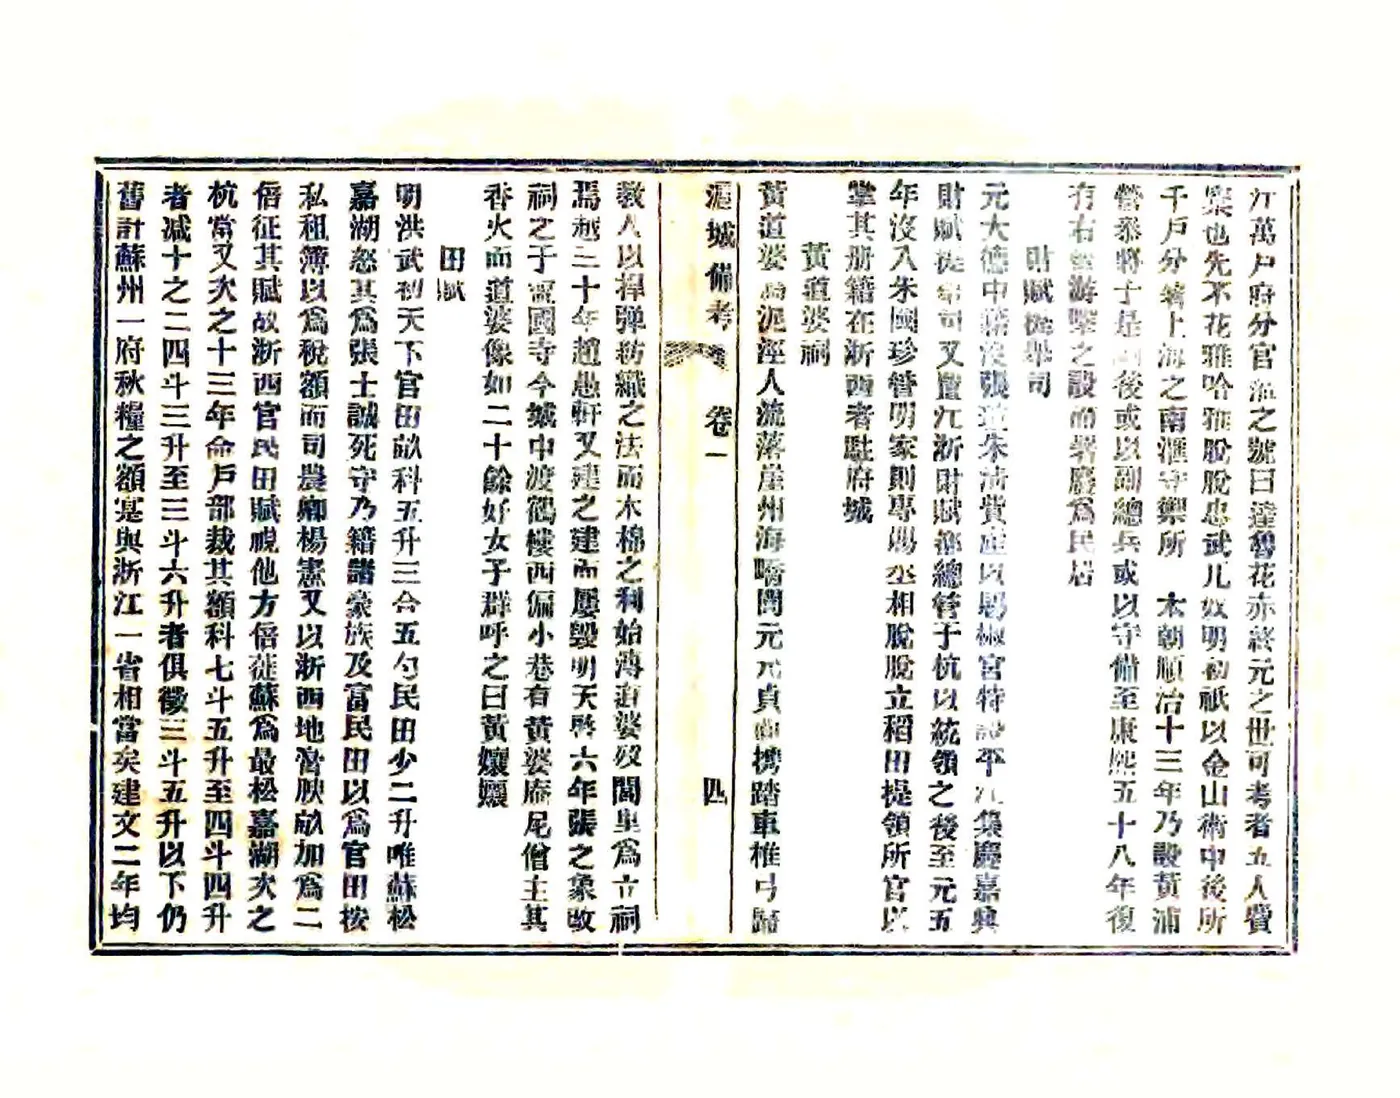 江萬戶府分官滬之號曰達魯花赤終元之世可考者五人費
榘也先不花雅哈雅脫脫忠武兒奴明初祇以金山衛中後所
千戶分守上海之南滙守禦所 本朝順治十三年乃設黃浦
營叅將于是前後或以副總兵或以守備至康熙五十八年復
有右營游擊之設而署廢為民居
財賦提舉司
元大德中籍沒張瑄朱淸貲產以賜椒宮特設平江集慶嘉興
財賦提舉司又置江浙財賦都總管于杭以統領之後至元五
年沒入朱國珍管明家則專賜丞相脫脫立稻田提領所官以
掌其冊籍在浙西者駐府城
黃道婆祠
黃道婆烏泥涇人流落崖州海嶠間元元貞間携踏車椎弓歸
滬城備考 卷一 四
敎人以捍彈紡織之法而木棉之利始溥道婆歿閭里為立祠
焉越三十年趙愚軒又建之建而屢毀明天啟六年張之象改
祠之于寧國寺今城中渡鶴樓西偏小巷有黃婆庵尼僧主其
香火而道婆像如二十餘好女子群呼之曰黃孃孃
田賦
明洪武初天下官田畝科五升三合五勺民田少二升唯蘇松
嘉湖怒其為張士誠死守乃籍諸豪族及富民田以為官田按
私租簿以為稅額而司農卿楊憲又以浙西地膏腴畝加為二
倍征其賦故浙西官民田賦視他方倍蓰蘇為最松嘉湖次之
杭常又次之十三年命戶部裁其額科七斗五升至四斗四升
者減十之二四斗三升至三斗六升者俱徵三斗五升以下仍
舊計蘇州一府秋糧之額寔與浙江一省相當矣建文二年均